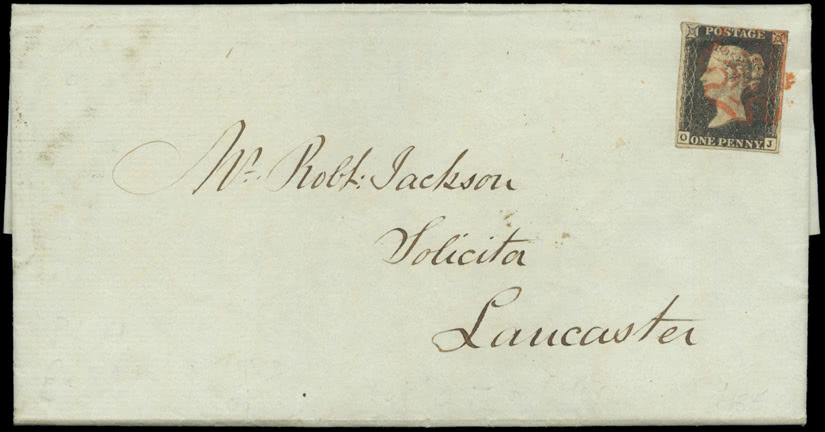 POSTAGE
O ONE PENNY J
Mr. Robt. Jackson
Solicitor
Lancaster